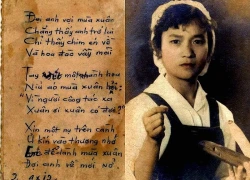 Đợi anh với mùa xuân
Chẳng thấy anh trở lại
Chỉ thấy chim én về
Và hoa đào vẫy mời
Tay một nhành hoa
Níu áo mùa xuân hỏi:
"Vì người công tác xa
Xuân đi xuân có đợi?"
Xin một nụ trên cành
Ủ kín vào thương nhớ
để dành mùa xuân
Đợi anh về mới nở